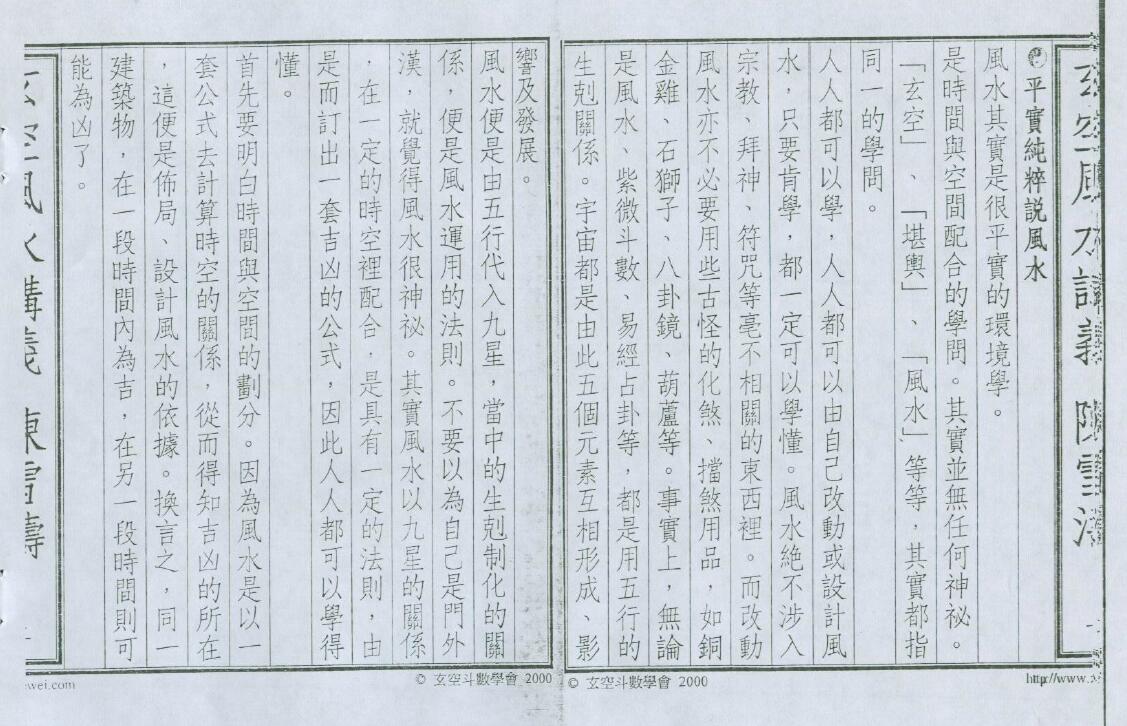 玄空風水講義 陳雪濤
一
☯平實純粹説風水
風水其實是很平實的環境學。
是時間與空間配合的學問。其實並無任何神祕。
「玄空」、「堪輿」、「風水」等等，其實都指
同一的學問。
人人都可以學，人人都可以由自己改動或設計風
水，只要肯學，都一定可以學懂。風水絕不涉入
宗教、拜神、符咒等毫不相關的東西裡。而改動
風水亦不必要用些古怪的化煞、擋煞用品，如銅
金雞、石獅子、八卦鏡、葫蘆等。事實上，無論
是風水、紫微斗數、易經占卦等，都是用五行的
生剋關係。宇宙都是由此五個元素互相形成、影
http://www.
© 玄空斗數學會 2000
響及發展。
風水便是由五行代入九星，當中的生剋制化的關
係，便是風水運用的法則。不要以為自己是門外
漢，就覺得風水很神祕。其實風水以九星的關係
，在一定的時空裡配合，是具有一定的法則，由
是而訂出一套吉凶的公式，因此人人都可以學得
懂。
首先要明白時間與空間的劃分。因為風水是以一
套公式去計算時空的關係，從而得知吉凶的所在
，這便是佈局、設計風水的依據。換言之，同一
建築物，在一段時間內為吉，在另一段時間則可
能為凶了。
玄空風水講義 陳雪濤
© 玄空斗數學會 2000
wei.com